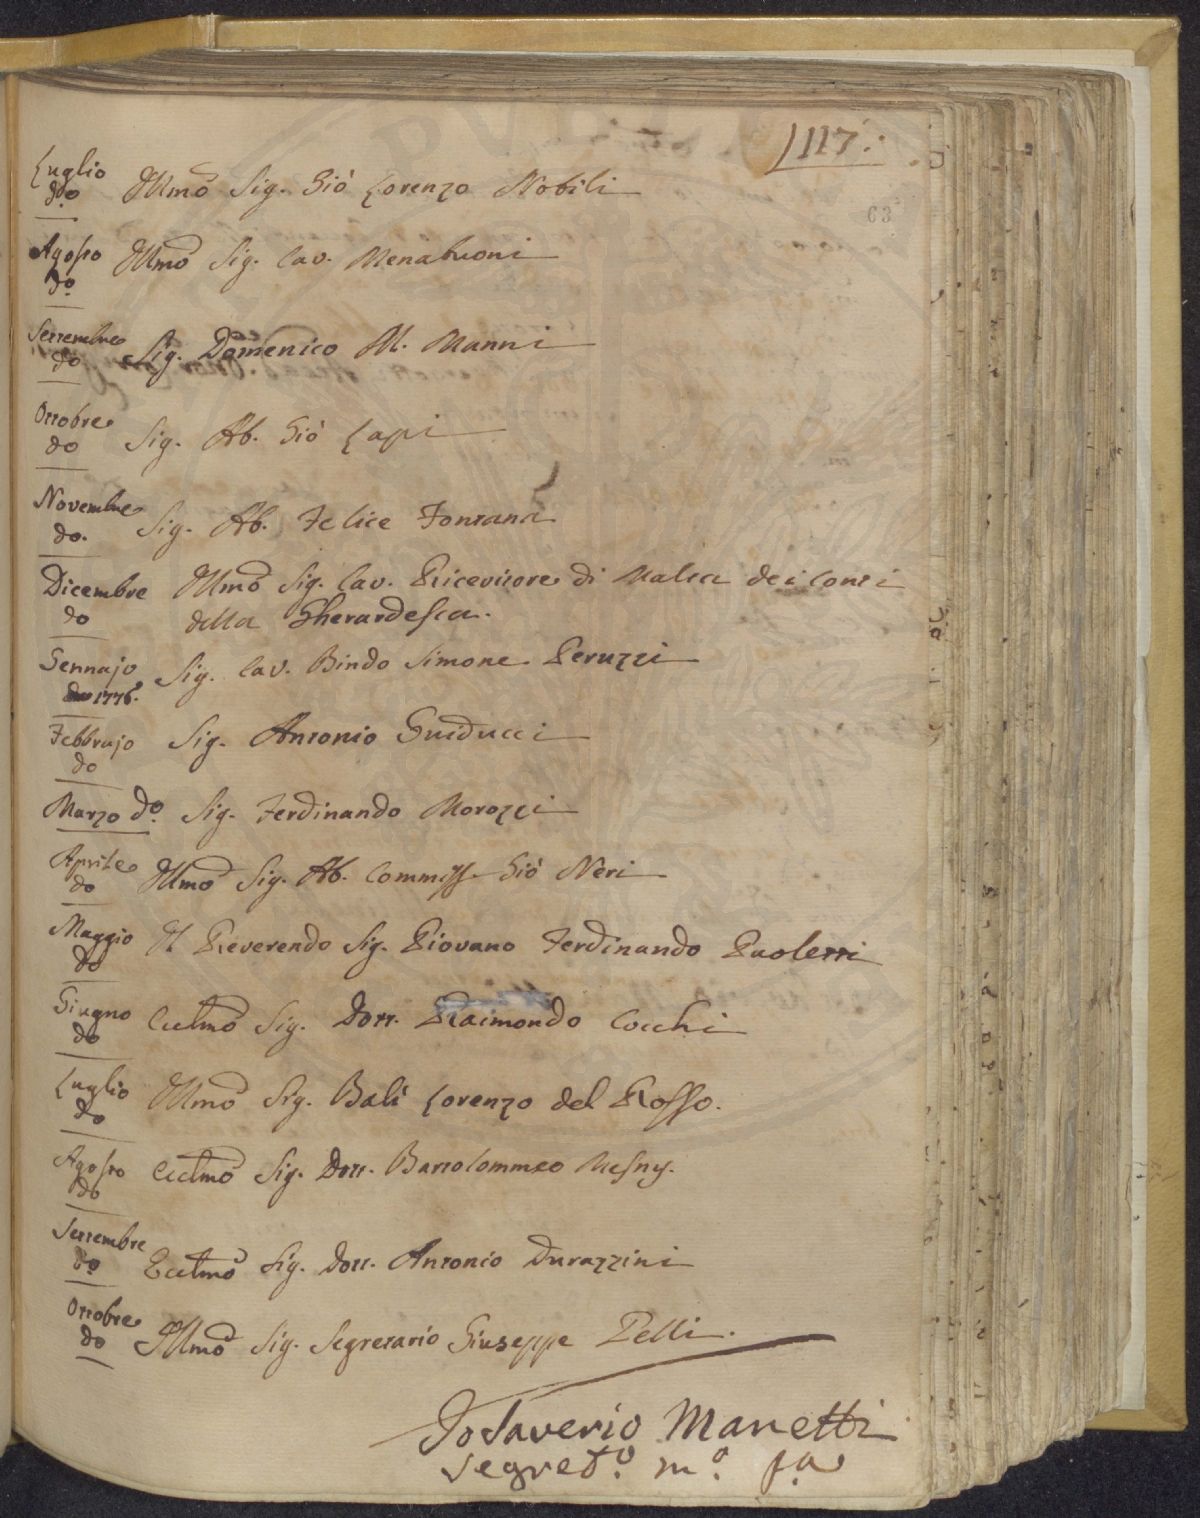 117.
63
Luglio
do
Illmo Sig. Gio Lorenzo Nobili
Agosto
do
Illmo Sig. Cav. Menabuoni
Settembre
do
Sig. Domenico M. Manni
Ottobre
do
Sig. Ab. Gio Lapi
Novembre
do.
Sig. Ab. Felice Fontana
Dicembre
do
Illmo Sig. Cav. Ricevitore di Malta dei Conti
della Gherardesca.
Gennajo
1776.
Sig. Cav. Bindo Simone Peruzzi
Febbrajo
do
Sig. Antonio Guiducci
Marzo do. Sig. Ferdinando Morozzi
Aprile
do
Illmo Sig. Ab. Commiss. Gio Neri
Maggio
do
Il Reverendo Sig. Piovano Ferdinando Paoletti
Giugno
do
Eccelmo Sig. Dott. Raimondo Cocchi
Luglio
do
Illmo Sig. Balì Lorenzo del Rosso.
Agosto
do
Eccelmo Sig. Dott. Bartolommeo Mesny.
Settembre
do
Eccelmo Sig. Dott. Antonio Durazzini
Ottobre
do
Illmo Sig. Segretario Giuseppe Pelli.
Io Saverio Manetti
Segreto. mo.